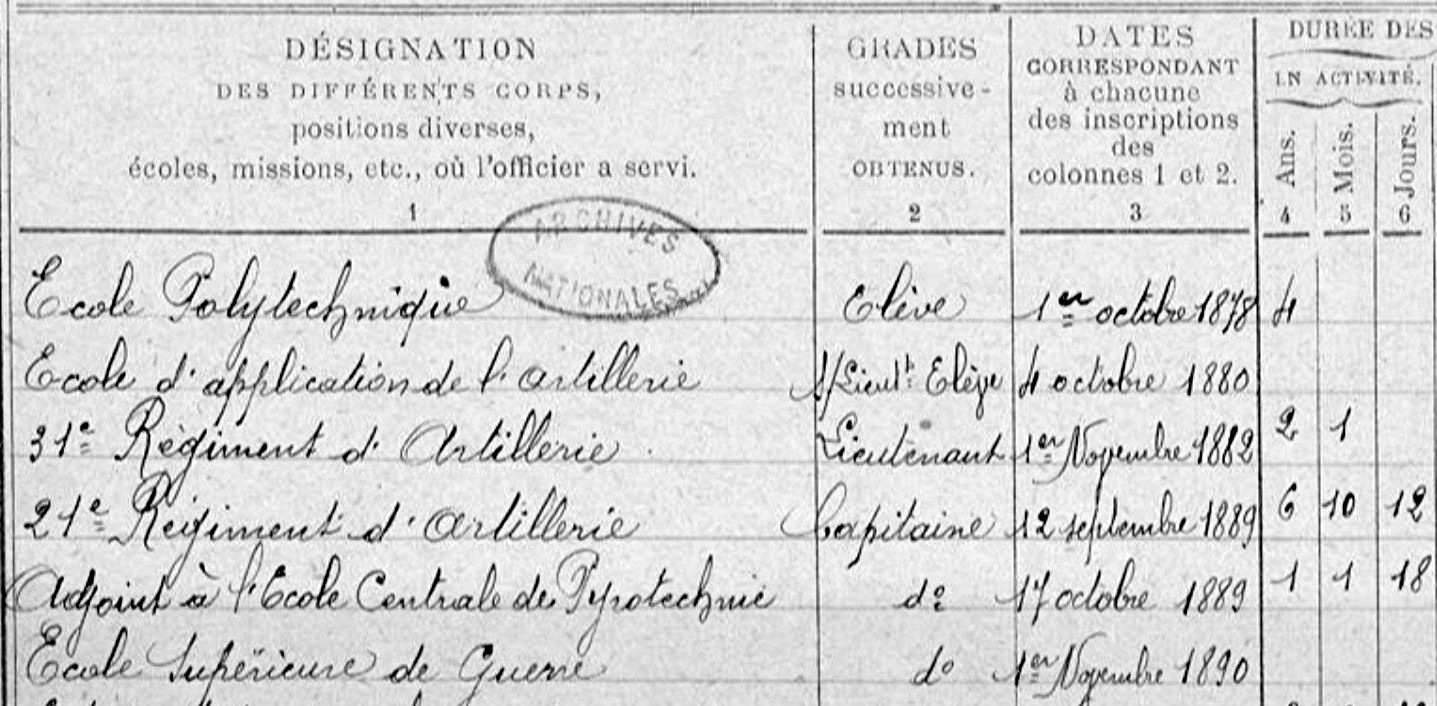 DÉSIGNATION
DES DIFFÉRENTS CORPS,
positions diverses,
écoles, missions, etc., où l'officier a servi.
1
GRADES
successive-
ment
OBTENUS.
2
DATES
CORRESPONDANT
à chacune
des inscriptions
des
colonnes 1 et 2.
3
DURÉE DES
EN ACTIVITÉ.
Ans.
4
Mois.
5
Jours.
6
ARCHIVES
NATIONALES
Ecole Polytechnique Elève 1er octobre 1878 4
Ecole d'application de l'artillerie S/Lieutt Elève 4 octobre 1880
31e Régiment d'Artillerie Lieutenant 1er Novembre 1882 2 1
21e Régiment d'artillerie Capitaine 12 septembre 1889 6 10 12
Adjoint à l'Ecole Centrale de Pyrotechnie do 17 octobre 1889 1 1 18
Ecole Supérieure de Guerre do 1er Novembre 1890